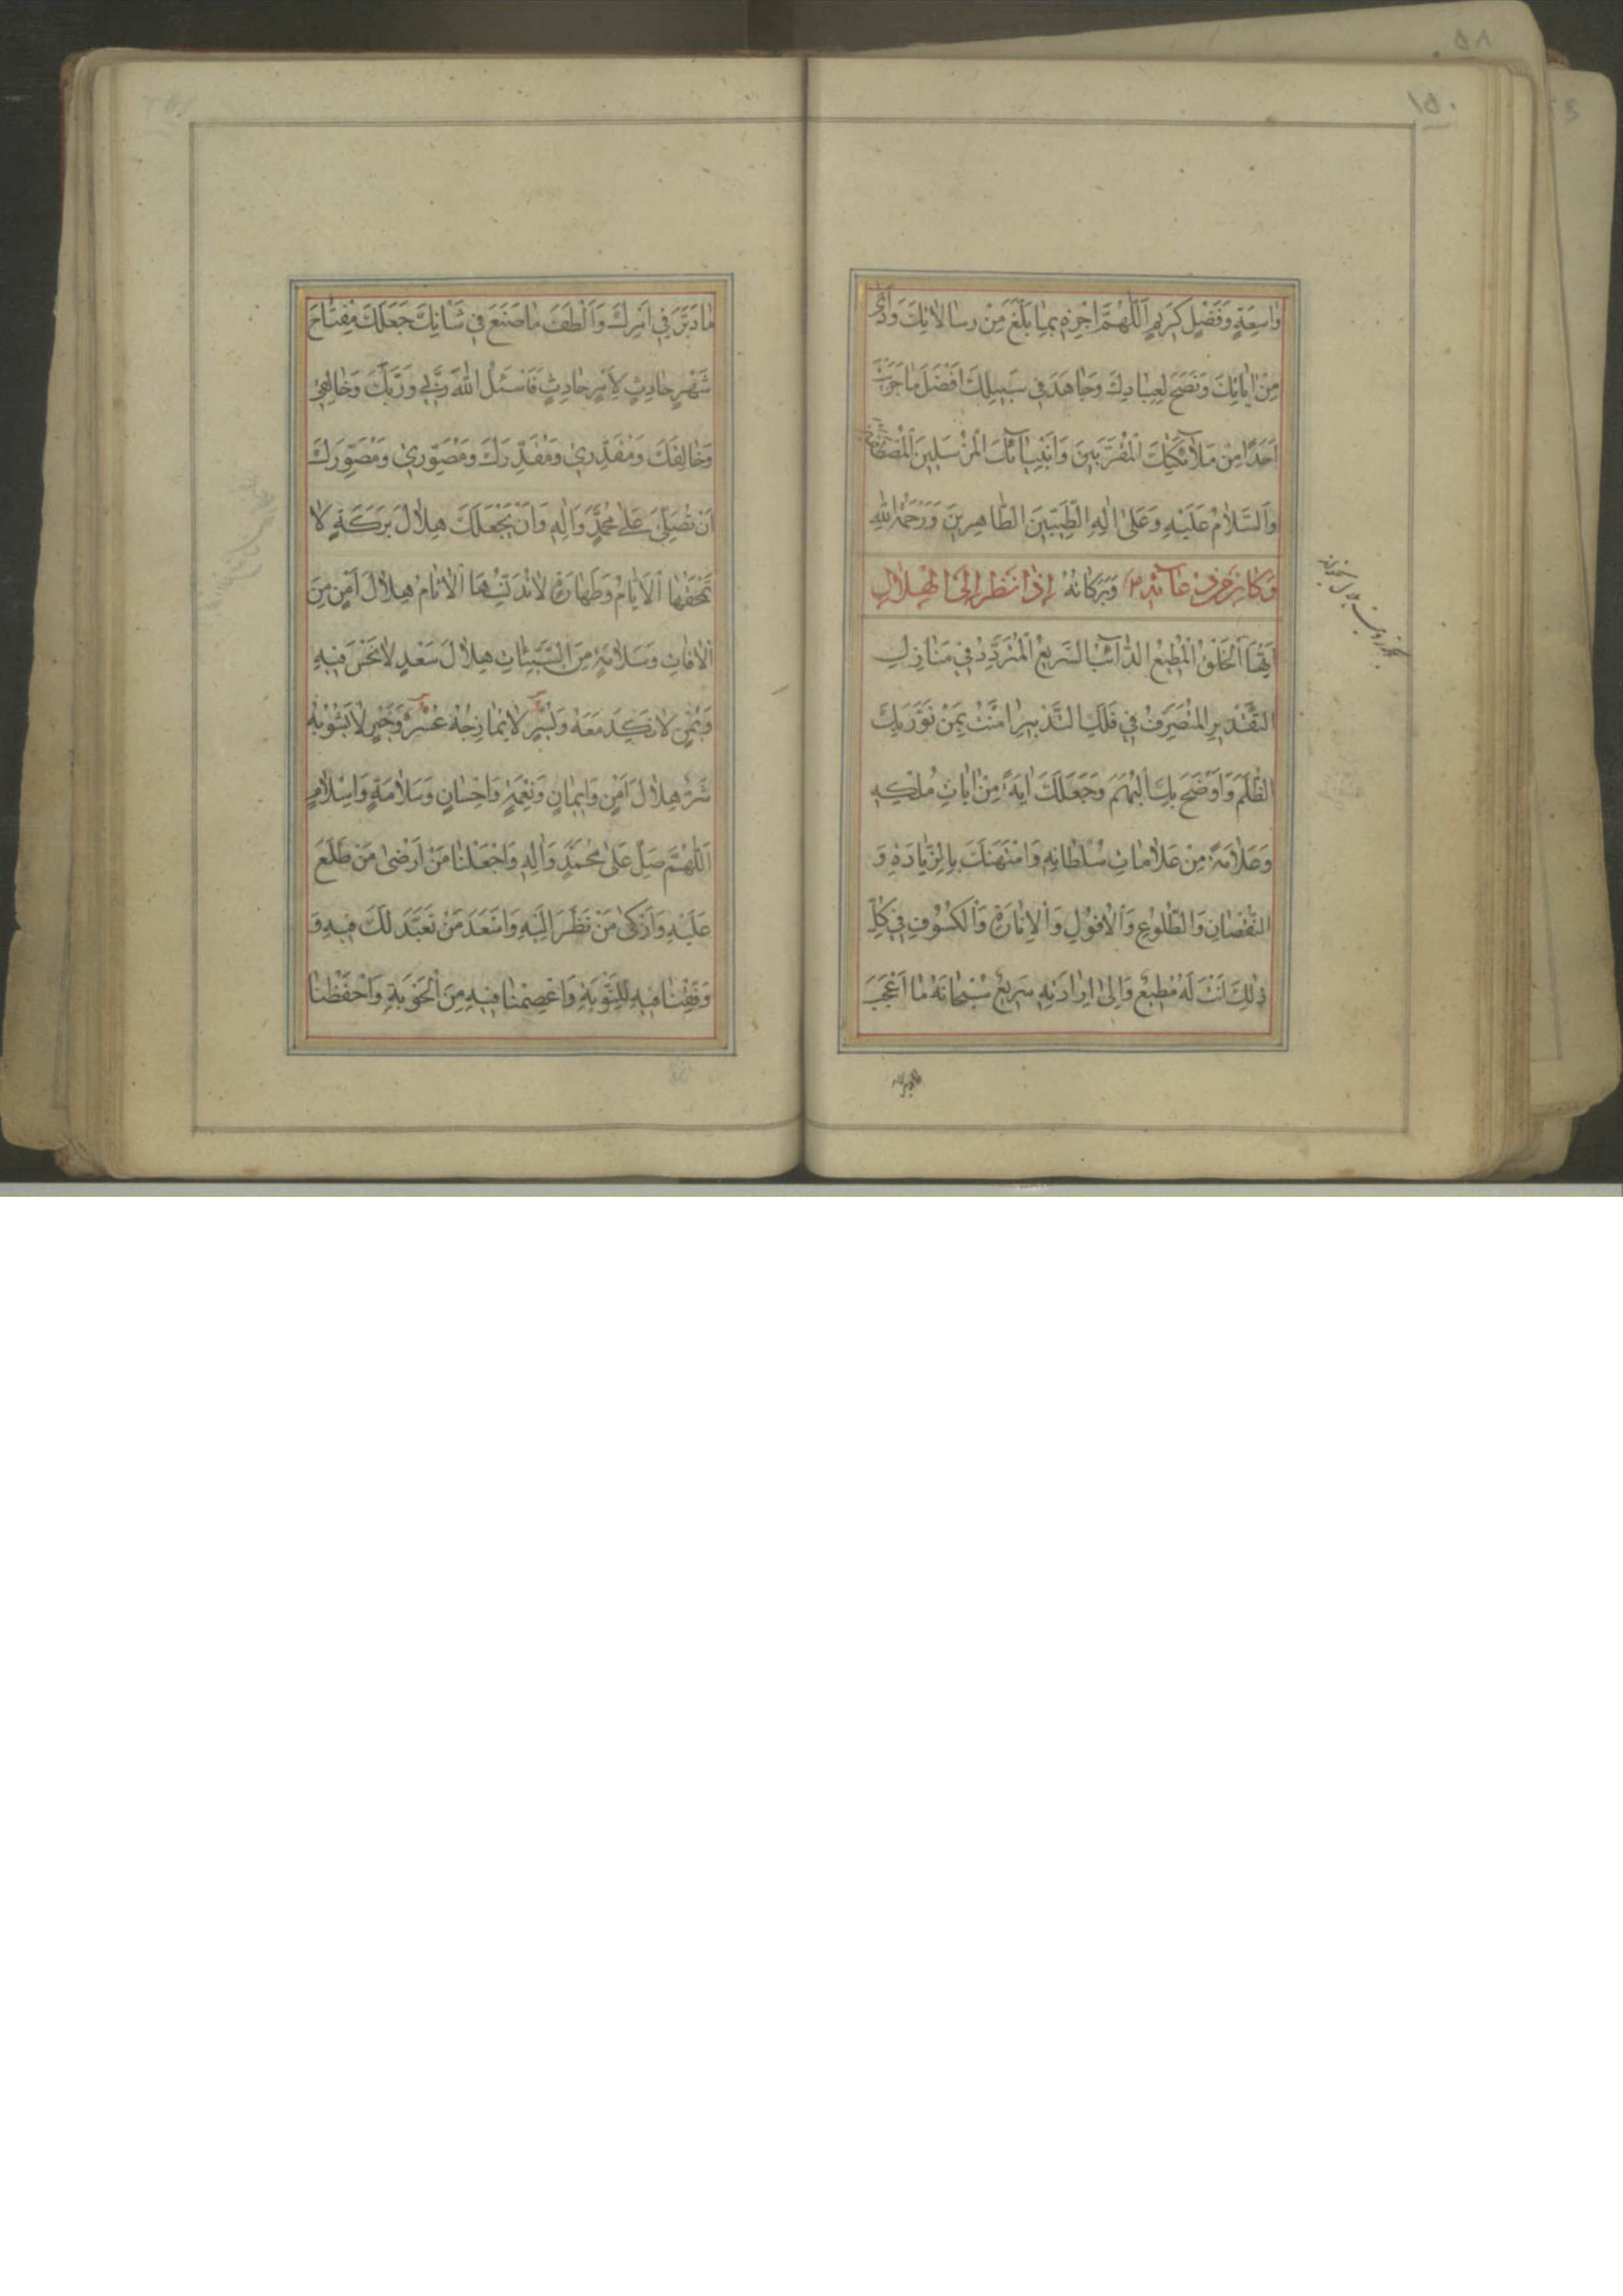 ١٥٠
وَاسِعَةٍ وَفَضْلٍ كَرِيمٍ اَللّٰهُمَّ اجْزِهِ بِمٰا بَلَّغَ مِنْ رِسٰالاٰتِكَ وَاَدّٰى
مِنْ اٰيٰاتِكَ وَنَصَحَ لِعِبٰادِكَ وَجٰاهَدَ فِي سَبِيلِكَ اَفْضَلَ مٰا جَزَيْتَ
اَحَدًا مِنْ مَلاٰئِكَتِكَ الْمُقَرَّبِينَ وَاَنْبِيٰائِكَ الْمُرْسَلِينَ الْمُصْطَفَيْنَ
وَالسَّلاٰمُ عَلَيْهِ وَعَلىٰ اٰلِهِ الطَّيِّبِينَ الطّٰاهِرِينَ وَرَحْمَةُ اللّٰهِ
وَبَرَكٰاتُهُ وَكٰانَ مِنْ دُعٰائِهِ ع اِذٰا نَظَرَ اِلَى الْهِلاٰلِ
اَيُّهَا الْخَلْقُ الْمُطِيعُ الدّٰائِبُ السَّرِيعُ الْمُتَرَدِّدُ فِي مَنٰازِلِ
التَّقْدِيرِ الْمُتَصَرِّفُ فِي فَلَكِ التَّدْبِيرِ اٰمَنْتُ بِمَنْ نَوَّرَ بِكَ
الظُّلَمَ وَاَوْضَحَ بِكَ الْبُهَمَ وَجَعَلَكَ اٰيَةً مِنْ اٰيٰاتِ مُلْكِهِ
وَعَلاٰمَةً مِنْ عَلاٰمٰاتِ سُلْطٰانِهِ وَامْتَهَنَكَ بِالزِّيٰادَةِ وَ
النُّقْصٰانِ وَالطُّلُوعِ وَالْاُفُولِ وَالْاِنٰارَةِ وَالْكُسُوفِ فِي كُلِّ
ذٰلِكَ اَنْتَ لَهُ مُطِيعٌ وَاِلىٰ اِرٰادَتِهِ سَرِيعٌ سُبْحٰانَهُ مٰا اَعْجَبَ
مٰا دَبَّرَ
مٰا دَبَّرَ فِي اَمْرِكَ وَاَلْطَفَ مٰا صَنَعَ فِي شَاْنِكَ جَعَلَكَ مِفْتٰاحَ
شَهْرٍ حٰادِثٍ لِاَمْرٍ حٰادِثٍ فَاَسْئَلُ اللّٰهَ رَبِّي وَرَبَّكَ وَخٰالِقِي
وَخٰالِقَكَ وَمُقَدِّرِي وَمُقَدِّرَكَ وَمُصَوِّرِي وَمُصَوِّرَكَ
اَنْ تُصَلِّيَ عَلىٰ مُحَمَّدٍ وَاٰلِهِ وَاَنْ يَجْعَلَكَ هِلاٰلَ بَرَكَةٍ لاٰ
تَمْحَقُهَا الْاَيّٰامُ وَطَهٰارَةٍ لاٰ تُدَنِّسُهَا الْاٰثٰامُ هِلاٰلَ اَمْنٍ مِنَ
الْاٰفٰاتِ وَسَلاٰمَةٍ مِنَ السَّيِّئٰاتِ هِلاٰلَ سَعْدٍ لاٰ نَحْسَ فِيهِ
وَيُمْنٍ لاٰ نَكَدَ مَعَهُ وَيُسْرٍ لاٰ يُمٰازِجُهُ عُسْرٌ وَخَيْرٍ لاٰ يَشُوبُهُ
شَرٌّ هِلاٰلَ اَمْنٍ وَاِيمٰانٍ وَنِعْمَةٍ وَاِحْسٰانٍ وَسَلاٰمَةٍ وَاِسْلاٰمٍ
اَللّٰهُمَّ صَلِّ عَلىٰ مُحَمَّدٍ وَاٰلِهِ وَاجْعَلْنٰا مِنْ اَرْضىٰ مَنْ طَلَعَ
عَلَيْهِ وَاَزْكىٰ مَنْ نَظَرَ اِلَيْهِ وَاَسْعَدَ مَنْ تَعَبَّدَ لَكَ فِيهِ وَ
وَفِّقْنٰا فِيهِ لِلتَّوْبَةِ وَاعْصِمْنٰا فِيهِ مِنَ الْحَوْبَةِ وَاحْفَظْنٰا